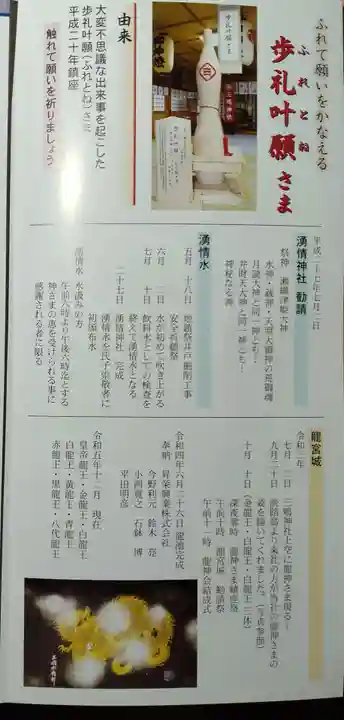 ふれて願いをかなえる
ふれとね
歩礼叶願さま
由来
大変不思議な出来事を起こした
歩礼叶願(ふれとね)さま
平成二十年鎮座
触れて願いを祈りましょう
平成二十七年七月二日
湧情神社 勧請
祭神 瀬織津姫大神
水神・祓神・天照大御神の荒御魂
月読大神と同一神とも…
弁財天大神と同一神とも…
神秘なる神
湧情水
五月 十八日 地鎮祭井戸掘削工事
安全祈願祭
六月 二日 水が初めて吹き上がる
七月 十日 飲料水としての検査を
終えて湧情水となる
二十七日 湧情神社 完成
湧情水を氏子崇敬者に
初頒布水
湧情水 水汲みの方
午前六時より午後六時迄とする
神さまの恵を受けられる事に
感謝される者に限る
龍宮城
令和二年
七月 二日 三嶋神社上空に龍神さま現る!
九月二十日 淡路島より来社の方が当社の龍神さまの
姿を描いてくれました。(写真参照)
十月 十日 (金龍王・白龍王・白龍王 三体)
深夜零時 龍神さま鎮座祭
午前十時 龍宮城 勧請祭
午前十一時 龍神会結成式
令和四年六月二十六日 龍池完成
奉納 昇栄興業株式会社
今野利元 鈴木 亮
小西寛之 石鉢 博
平田明彦
令和五年十二月 現在
皇帝龍王・金龍王・白龍王
白龍王・黄龍王・青龍王
赤龍王・黒龍王・八代龍王